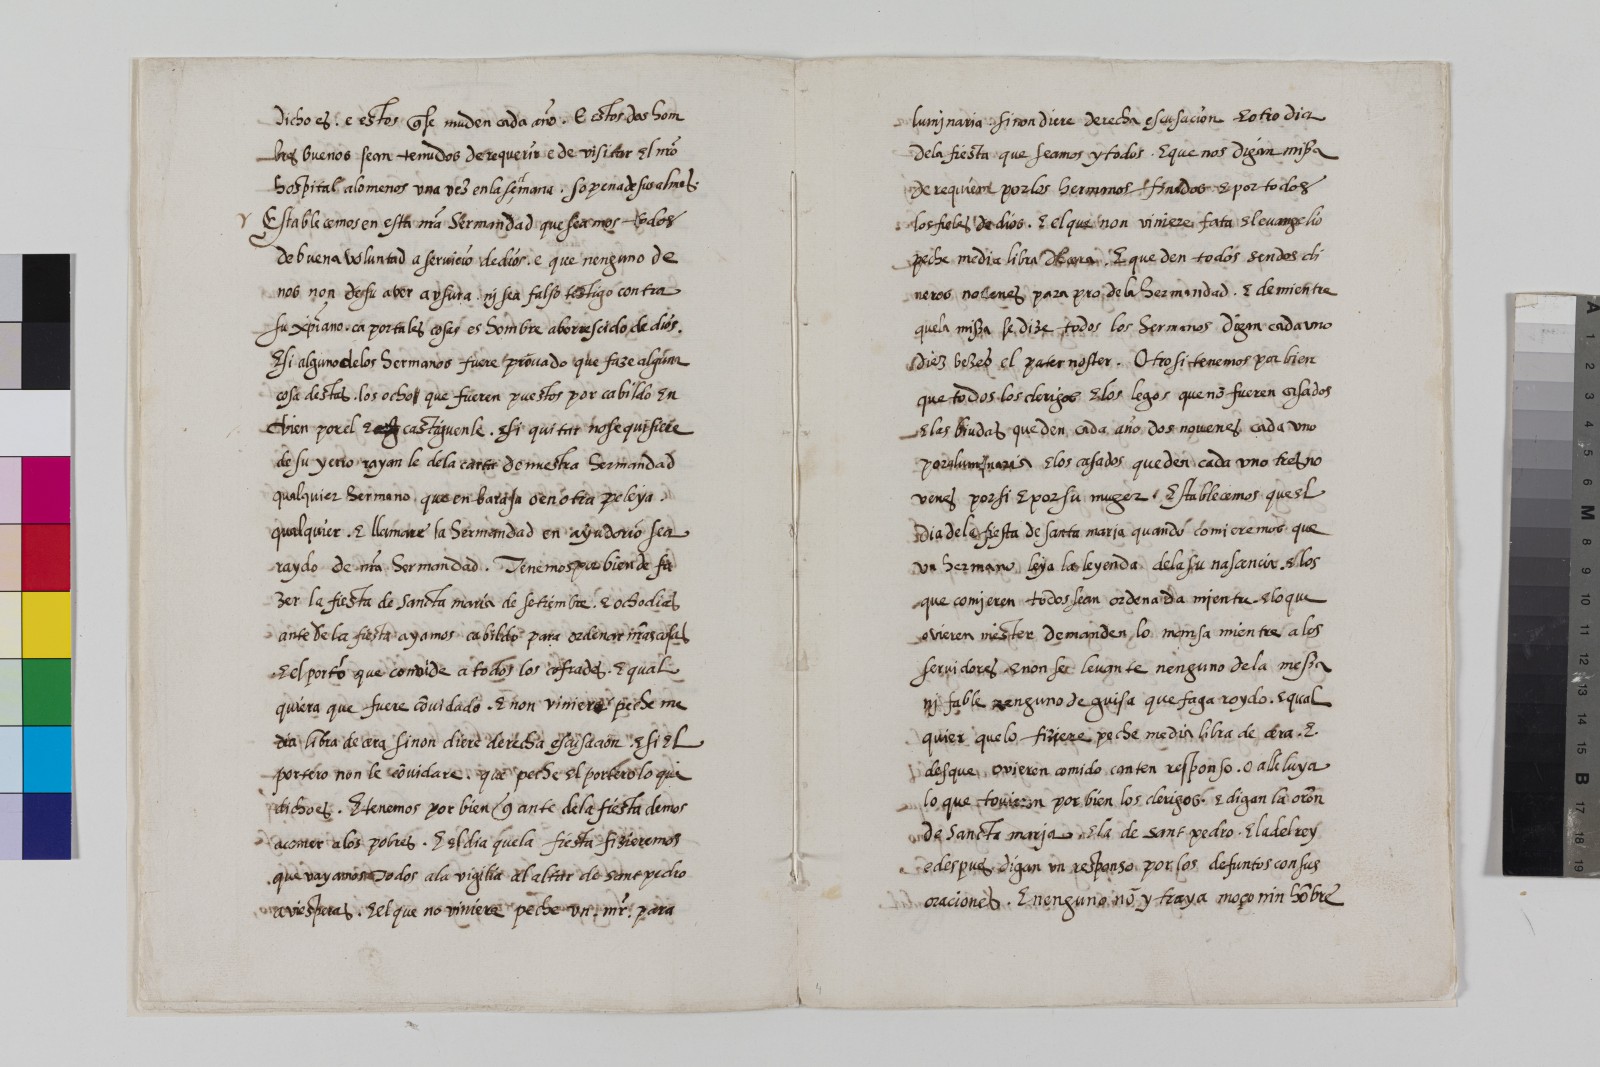 dicho es. e estos q̃ se muden cada año. E estos dos hom
bres buenos sean tenudos de requerir e de visitar El nr̃o
hospital alomenos vna ves en la semana. so pena de sus almas.
Establecemos en esta nr̃a Hermandad que seamos todos
de buena voluntad a servicio de dios. e que nenguno de
nos non de su aver a vsura. nj sea falso testigo contra
su xp̃iano. ca por tales cosas es hombre aborrescido de dios.
E si alguno delos hermanos fuere prouado que faze alguna
cosa destas. los ocho que fueren puestos por cabildo En
bien por el E castiguenle. E si quitar no se quisiere
de su yerro rayan le dela carta de nuestra hermandad
qualquier hermano que en baraja o en otra peleja
qualquier. E llamare la hermandad en ayudorio sea
raydo de nr̃a hermandad. Tenemos por bien de fa
zer la fiesta de Sancta maria de setiembre. E ocho dias
ante de la fiesta ayamos cabildo para ordenar nr̃as cosas
E el porto que convide a todos los cofrades. E qual
quiera que fuere cõuidado. E non viniere peche me
dia libra de cera si non diere derecha escusacion. E si El
portero non le cõuidare. que peche El portero lo que
dicho es. E tenemos por bien q̃ ante de la fiesta demos
a comer a los pobres. E el dia que la fiesta fizieremos
que vayamos todos a la vigilia al altar de Sant pedro
a viesperas. E el que no viniere peche vn mr̃. para
lumjnaria. si non diere derecha escusacion E otro dia
dela fiesta que seamos y todos. E que nos digan missa
de requiem por los hermanos finados E por todos
los fieles de dios. E el que non viniere fata El euangelio
peche media libra de cera. E que den todos sendos di
neros nouenes para pro de la hermandad. E demientre
que la missa se dize todos los hermanos digan cada vno
diez vezes el pater noster. Otrosi tenemos por bien
que todos los clerigos E los legos que nõ fueren casados
E las biudas que den cada año dos nouenes cada vno
por alumjnaria E los casados que den cada vno tres no
venes por si E por su muger. Establecemos que El
dia de la fiesta de santa maria quando comieremos que
vn hermano leya la leyenda de la su nascencia. E los
que comjeren todos sean ordenada mientre E lo que
ovieren mester demanden lo mansa mientre a los
servidores E non se leuante nenguno de la messa
nj fable nenguno de guisa que faga roydo. E qual
quier que lo fiziere peche media libra de cera. E
desque ovieren comido canten responso. o alleluya
lo que tovieren por bien los clerigos. E digan la orõn
de Sancta maria. E la de sant pedro. E la del rey
e despues digan vn responso por los defuntos con sus
oraciones. E nenguno nõ y traya moço nin hõbre